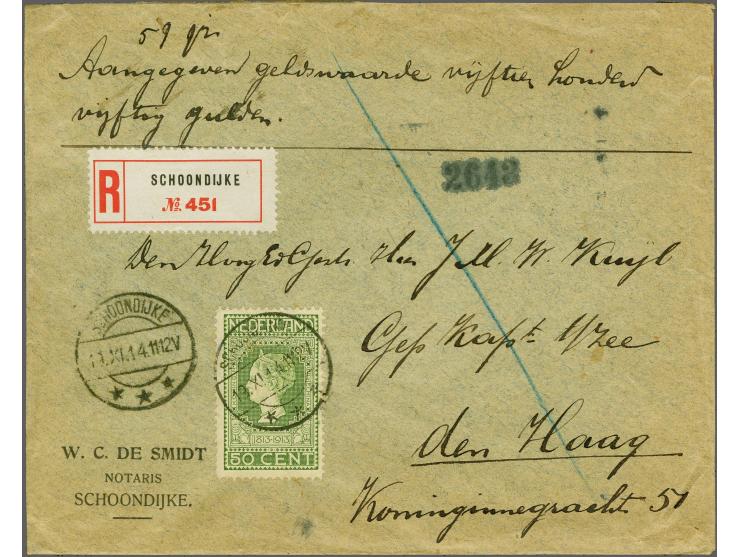 59 gr.
Aangegeven geldswaarde vijftien honderd
vijftig gulden.
R
SCHOONDIJKE
№ 451
2643
Den HoogEdGestr. Heer J. M. W. Kuijl
Gep Kapt. t/zee
den Haag
Koninginnegracht 51
SCHOONDIJKE
.XI.14.1112V
NEDERLAND
.XI.14.1112V
1813-1913
50 CENT
W. C. DE SMIDT
NOTARIS
SCHOONDIJKE.